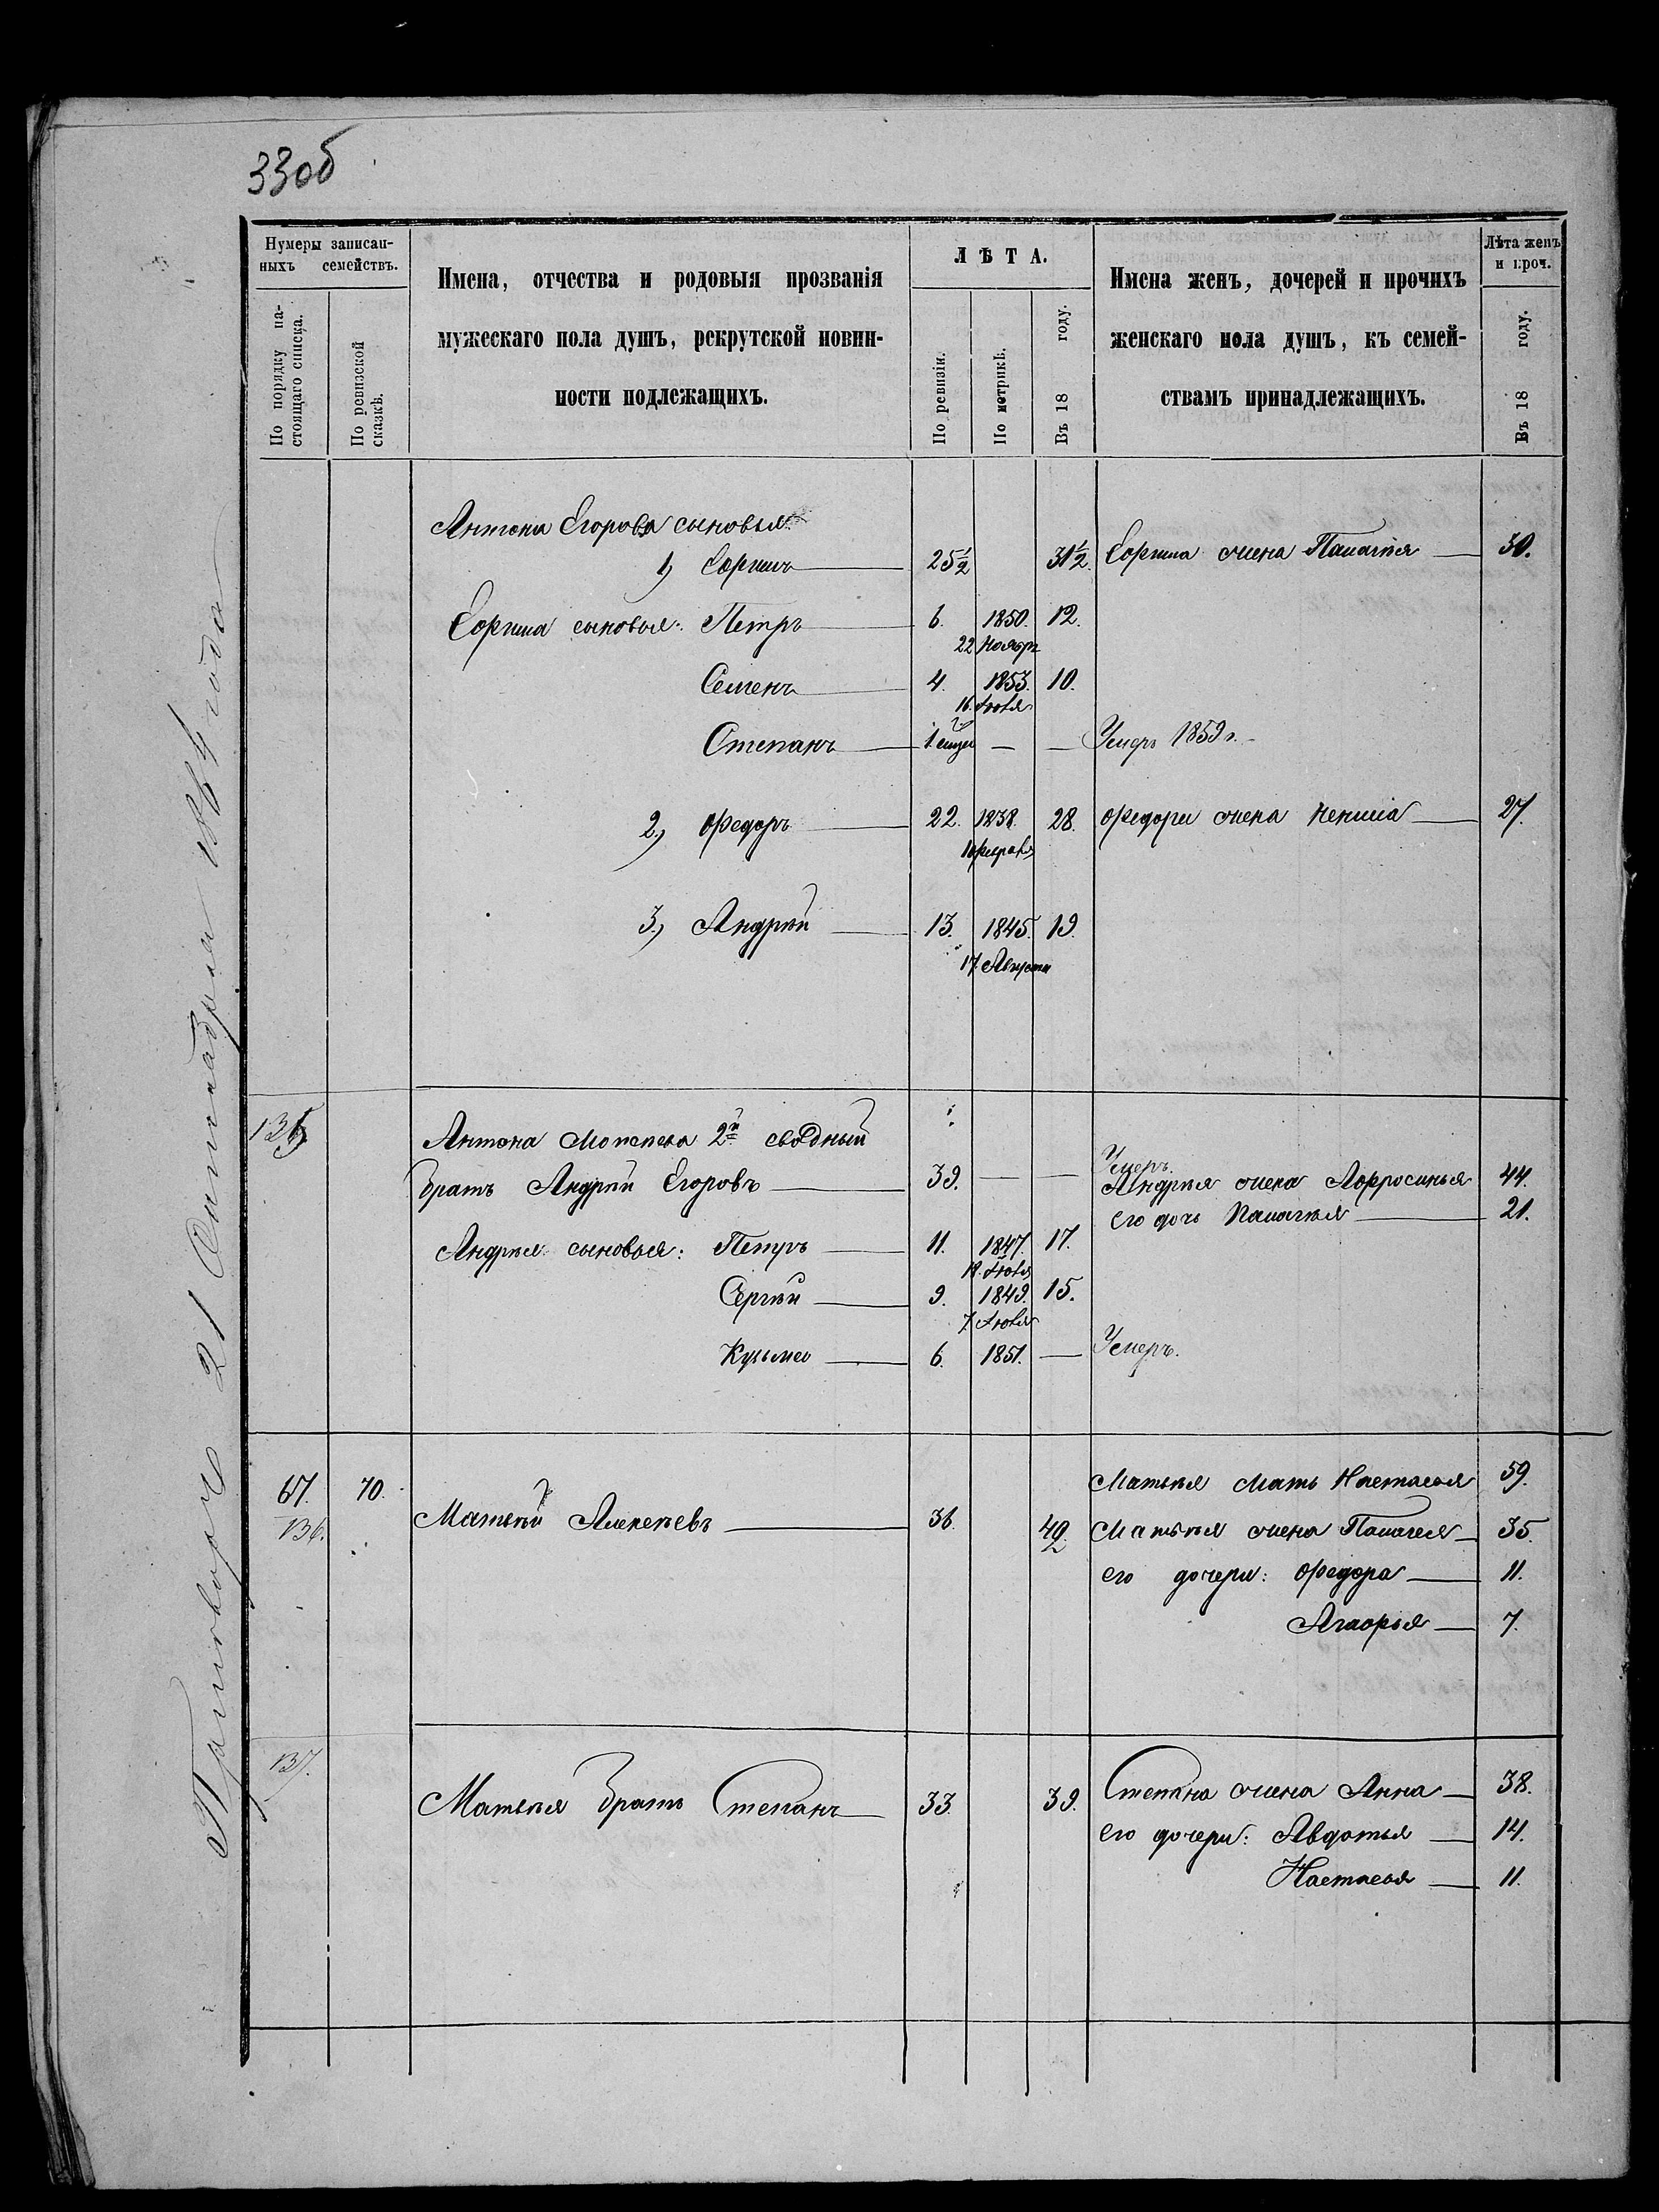 33об
Нумеры записан-
ныхъ семействъ.
По порядку на-
стоящаго списка.
По ревизской
сказкѣ.
Имена, отчества и родовыя прозванія
мужескаго пола душъ, рекрутской повин-
ности подлежащихъ.
ЛѢТА.
По ревизіи.
По метрикѣ.
Въ 18 году.
Имена женъ, дочерей и прочихъ
женскаго пола душъ, къ семей-
ствамъ принадлежащихъ.
Лѣта женъ
и проч.
Въ 18 году.
Антона Егорова сыновья:
1, 25½ 31½ жена Палагѣя 30.
сыновья: Петръ 6. 1850. 12.
22 Ноября
Семенъ 4. 1853. 10.
16. Іюля
Степанъ 1 — — Умеръ 1859 г.
2, Федоръ 22. 1838 28. Федора жена 27.
Февраля
3, Андрѣй 13. 1845. 19.
17. Августа
135
Антона 2й сводный
братъ Андрѣй Егоровъ 39. — — Умеръ.
Андрѣя жена Афросинья 44.
его дочь Палагѣя 21.
Андрѣя сыновья: Петръ 11. 1847. 17.
Іюля
Сергѣй 9. 1849. 15.
7 Іюля
Кузьма 6. 1851. — Умеръ.
67. 70. Матвѣя мать Настасья 59.
136. Матвѣй Алексѣевъ 36. 42 Матвѣя жена Палагея 35.
его дочери: Федора 11.
Агафья 7.
137. Матвѣя братъ Степанъ 33. 39. Степана жена Анна 38.
его дочери: Авдотья 14.
Настасья 11.
21 1864 года